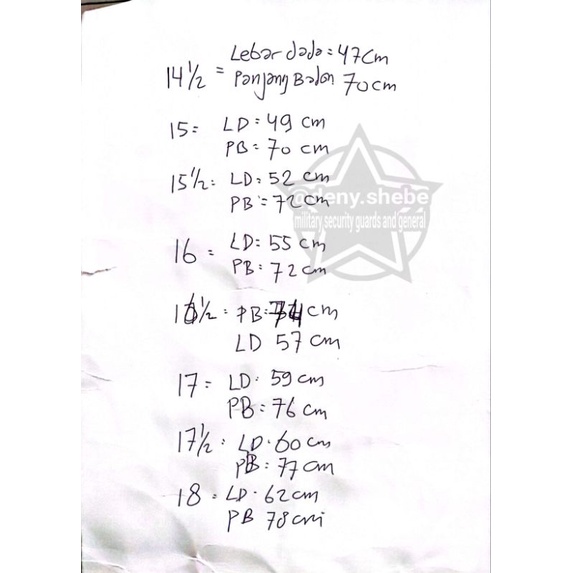 Lebar dada = 47 cm
14 1/2 = Panjang Badan 70 cm
15 = LD = 49 cm
PB = 70 cm
15 1/2 = LD = 52 cm
PB = 72 cm
@deny.shebe
military security guards and general
16 = LD = 55 cm
PB = 72 cm
16 1/2 = PB = 74 cm
LD 57 cm
17 = LD = 59 cm
PB = 76 cm
17 1/2 = LD = 60 cm
PB = 77 cm
18 = LD = 62 cm
PB 78 cm